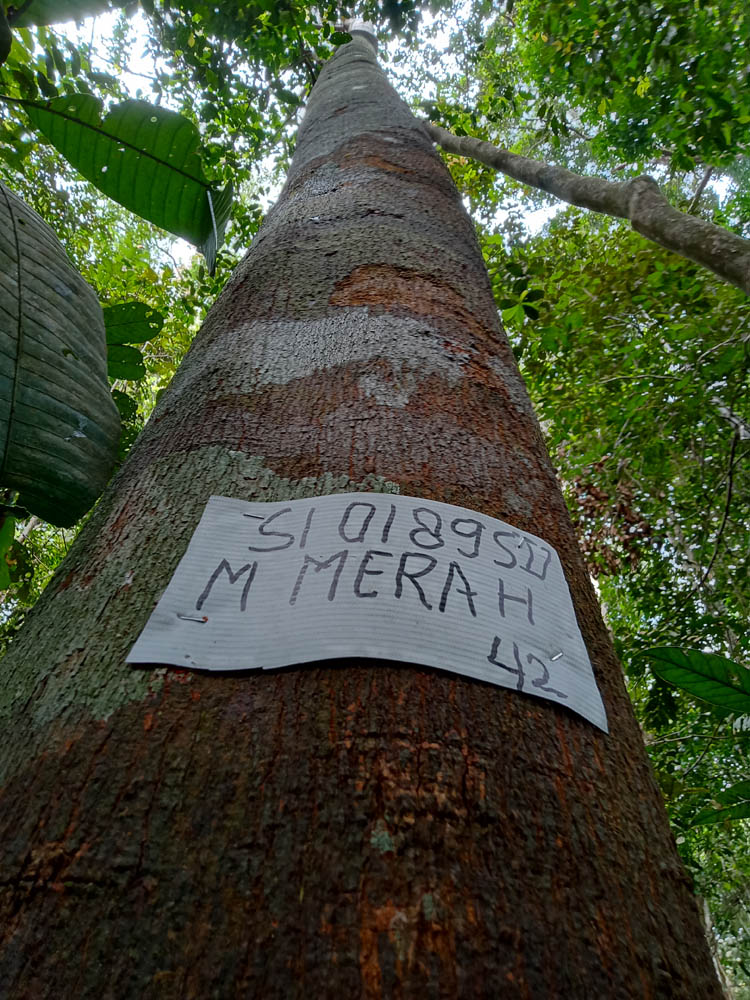 SI 0189511
M MERAH
42